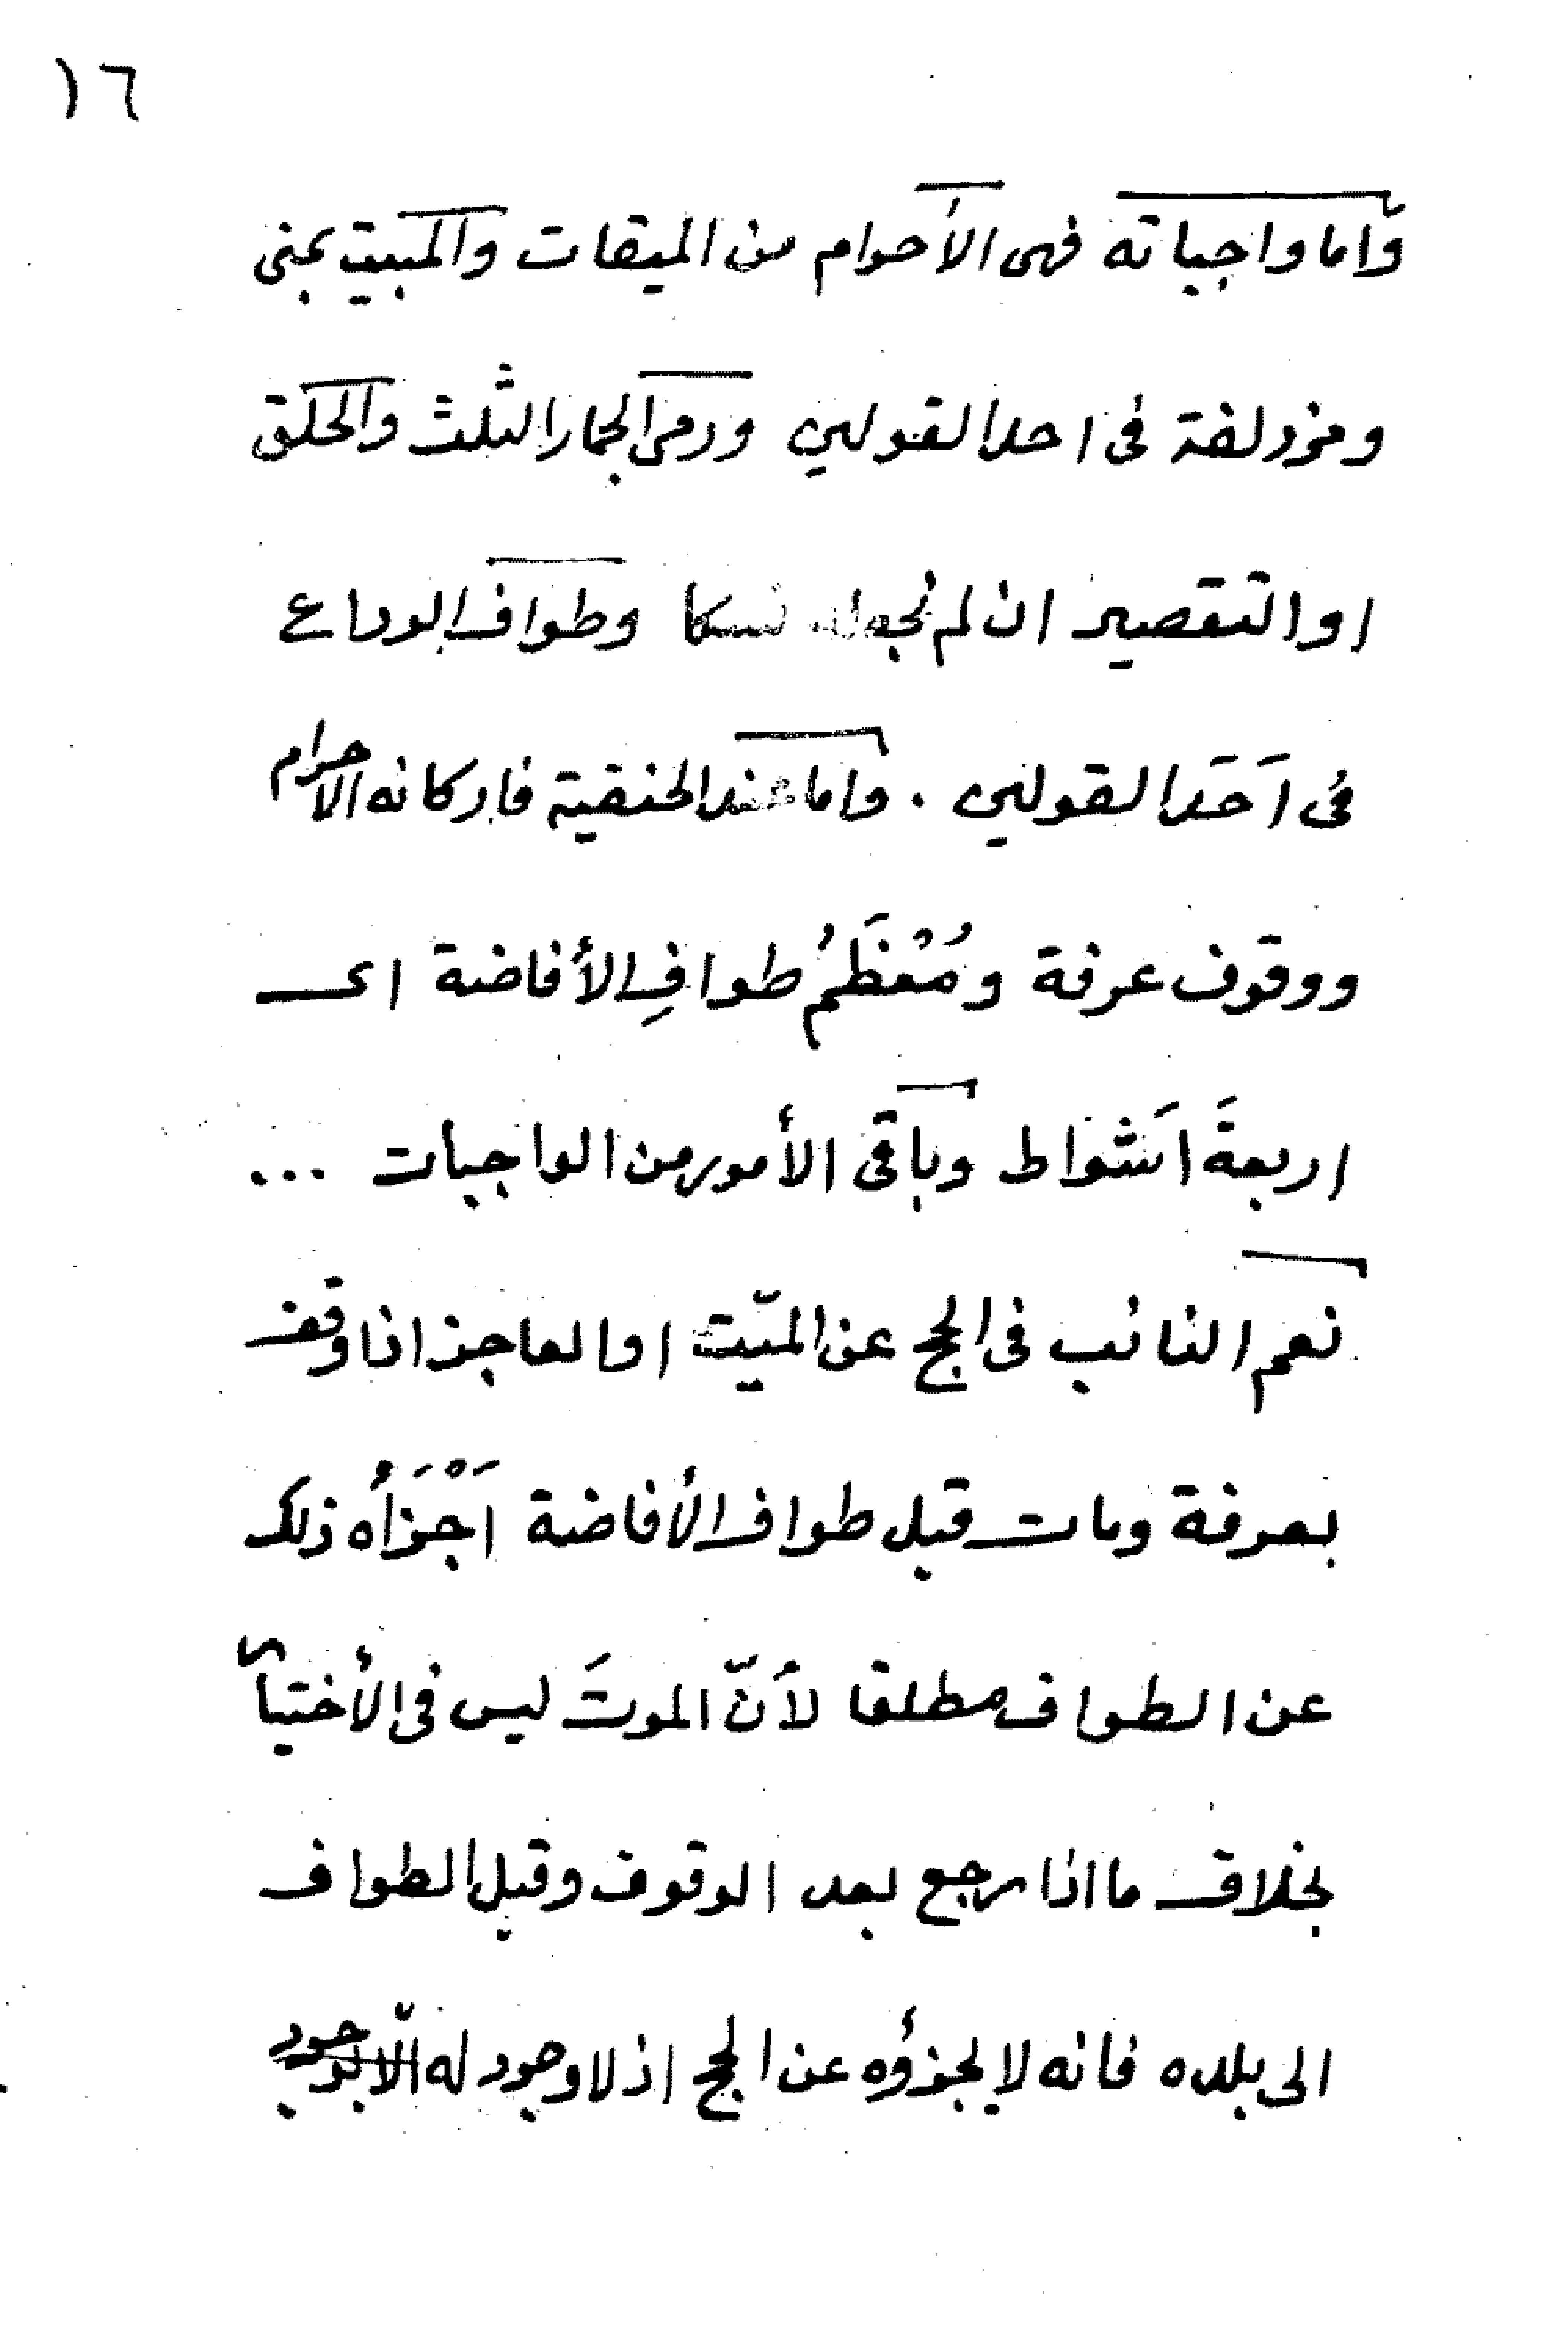 ١٦
وأما واجباته فهى الأحرام من الميقات والمبيت بمنى
ومزدلفة فى احد القولين ورمى الجمار الثلث والحلق
او التقصير ان لم نجعله نسكا وطواف الوداع
فى اَحَد القولين . واما عند الحنفية فاركانه الاحرام
ووقوف عرفة ومُعْظَمُ طوافِ الأفاضة اى
اربعةَ اَشواط وباقى الأمور من الواجبات ...
نعم النائب فى الحج عن الميّت او العاجز اذا وقف
بعرفة ومات قبل طواف الأفاضة اَجْزَأُه ذلك
عن الطواف مطلقا لأنّ الموتَ ليس فى الأختيار
بخلاف ما اذا رجع بعد الوقوف وقبل الطواف
الى بلده فانه لا يجزؤه عن الحج اذ لا وجود له الّا بوجود